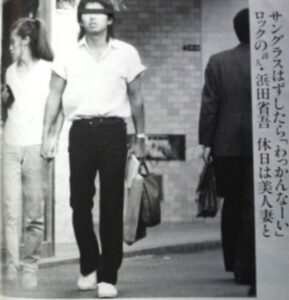 サングラスはずしたら「わっかんなーい」
ロックの詩人・浜田省吾 休日は美人妻と